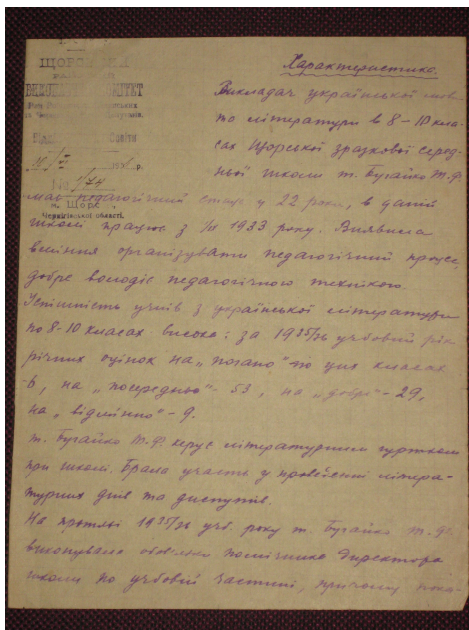 ЩОРСЬКИЙ
ВИКОНАВЧИЙ КОМІТЕТ
Відділ Освіти
м. Щорс,
Чернігівської області.
Характеристика.
Викладач української мови
та літератури в 8-10 кла-
сах Щорської зразкової серед-
ньої школи т. Бугайко Т.Ф.
має педагогічний стаж у 22 роки, в даній
школі працює з 1933 року. Виявила
вміння організувати педагогічний процес,
добре володіє педагогічною технікою.
Успішність учнів з української літератури
по 8-10 класах висока: за 1935/36 учбовий рік
річних оцінок на „погано" по цих класах
-6, на „посередньо" - 53, на „добре" - 29,
на „відмінно" - 9.
т. Бугайко Т.Ф. керує літературним гуртком
при школі. Брала участь у проведенні літера-
турних днів та диспутів.
На протязі 1935/36 учб. року т. Бугайко Т.Ф.
виконувала обов'язки помічника директора
школи по учбовій частині, причому пока-